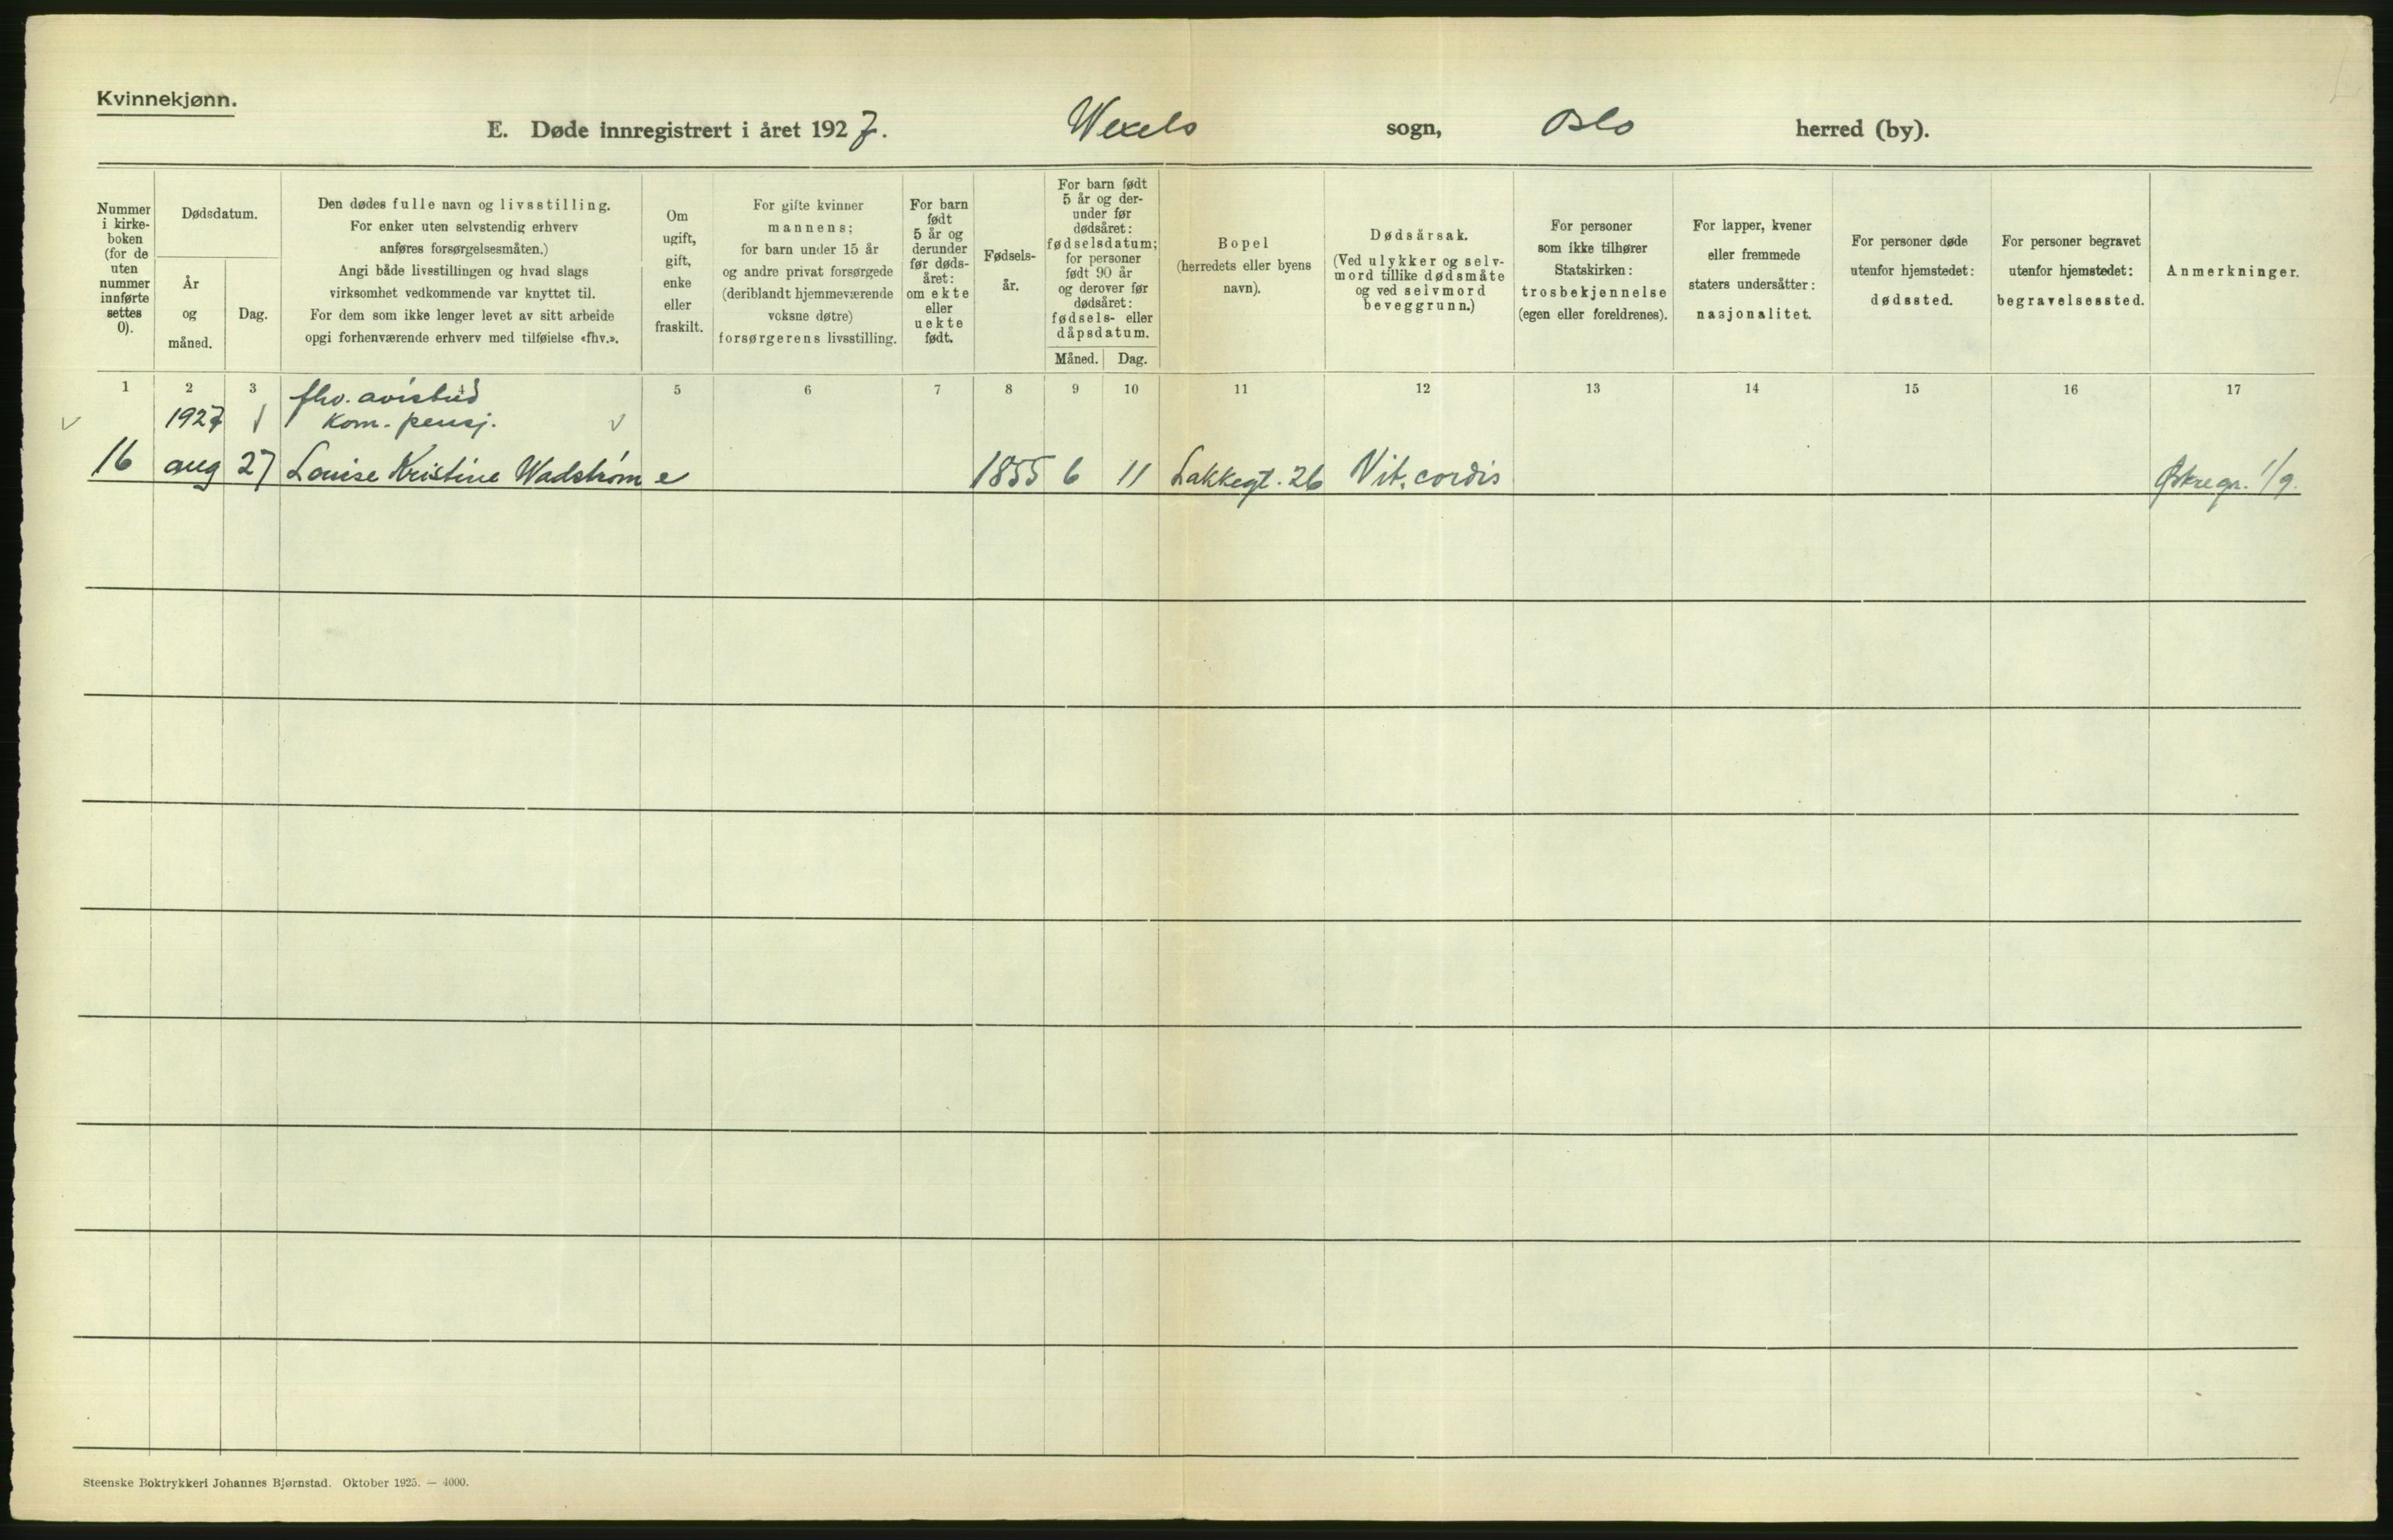 Kvinnekjønn.
E. Døde innregistrert i året 1927. Wexels sogn, Oslo herred (by).
Nummer
i kirke-
boken
(for de
uten
nummer
innførte
settes
0).
Dødsdatum.
År
og
måned.
Dag.
Den dødes fulle navn og livsstilling.
For enker uten selvstendig erhverv
anføres forsørgelsesmåten.)
Angi både livsstillingen og hvad slags
virksomhet vedkommende var knyttet til.
For dem som ikke lenger levet av sitt arbeide
opgi forhenværende erhverv med tilføielse «fhv.».
Om
ugift,
gift,
enke
eller
fraskilt.
For gifte kvinner
mannens;
for barn under 15 år
og andre privat forsørgede
(deriblandt hjemmeværende
voksne døtre)
forsørgerens livsstilling.
For barn
født
5 år og
derunder
før døds-
året:
om ekte
eller
uekte
født.
Fødsels-
år.
For barn født
5 år og der-
under før
dødsåret:
fødselsdatum;
for personer
født 90 år
og derover før
dødsåret:
fødsels- eller
dåpsdatum.
Måned. Dag.
Bopel
(herredets eller byens
navn).
Dødsårsak.
(Ved ulykker og selv-
mord tillike dødsmåte
og ved selvmord
beveggrunn.)
For personer
som ikke tilhører
Statskirken:
trosbekjennelse
(egen eller foreldrenes).
For lapper, kvener
eller fremmede
staters undersåtter:
nasjonalitet.
For personer døde
utenfor hjemstedet:
dødssted.
For personer begravet
utenfor hjemstedet:
begravelsessted.
Anmerkninger.
1 2 3 4 5 6 7 8 9 10 11 12 13 14 15 16 17
fhv. avisbud
1927 kom. pensj.
16 aug 27 Louise Kristine Wadstrøm e 1855 6 11 Lakkegt. 26 Vit. cordis Østre gr. 1/9.
Steenske Boktrykkeri Johannes Bjørnstad. Oktober 1925. — 4000.